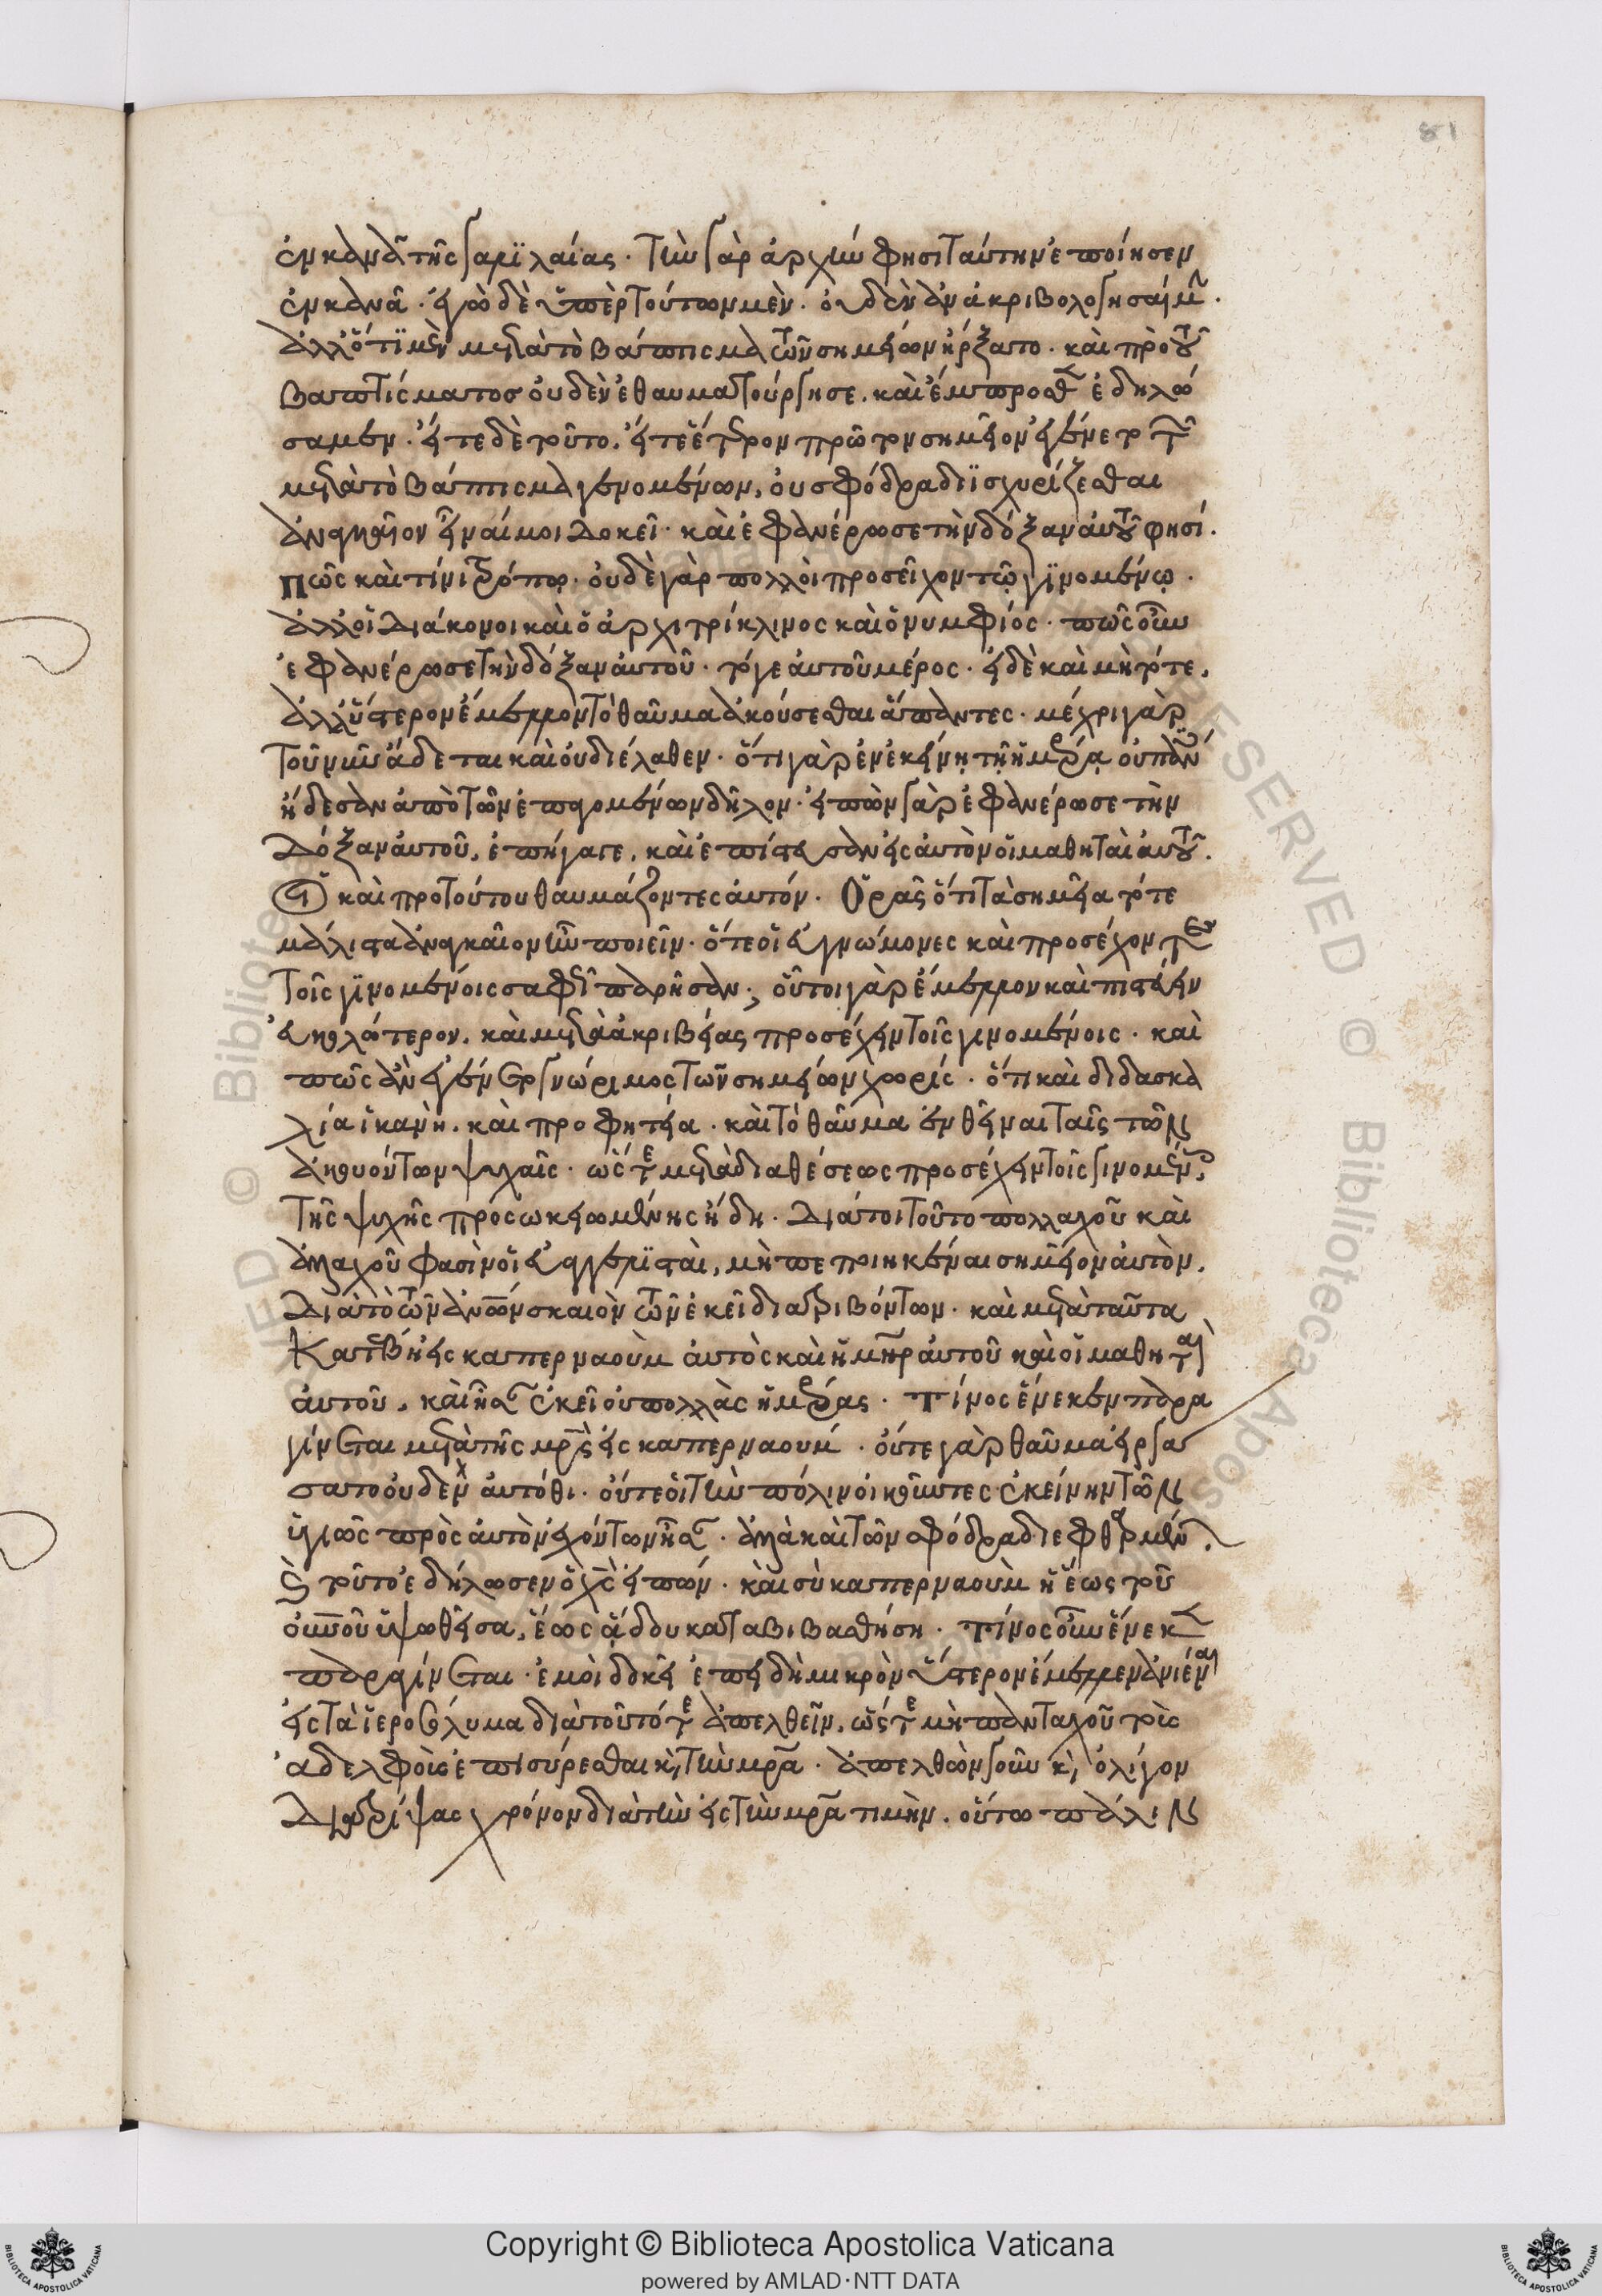 ἐν κανᾶ τῆς γαλϊλαίας · τὴν γὰρ ἀρχὴν φησὶ ταύτην ἐποίησεν
ἐν κανᾶ · ἐγὼ δὲ ὑπὲρ τούτων μὲν · οὐδὲν ἀν ἀκριβολογησαίμην ·
ἀλλ' ὅτϊ μὲν μετὰ τὸ βάπτισμα τῶν σημείων ἤρξατο · καὶ πρὸ τοῦ
βαπτίσματος οὐδὲν ἐθαυματούργησε, καὶ ἔμπροσθεν ἐδηλώ
σαμεν · εἴτε δὲ τοῦτο, εἴτε ἕτερον πρῶτον σημεῖον ἐγένετο τῶν
μετὰ τὸ βάπτισμα γενομένων, οὐ σφόδρα δϊϊσχυρίζεσθαι
ἀναγκαῖον εἶναί μοι δοκεῖ · καὶ ἐφανέρωσε τὴν δόξαν αὐτοῦ φησί ·
πῶς καὶ τίνι τρόπῳ · οὐδὲ γὰρ πολλοὶ προσεῖχον τῷ γϊνομένῳ ·
ἀλλ' οἱ διάκονοι καὶ ὁ ἀρχιτρίκλινος καὶ ὁ νυμφίος · πῶς οὖν
ἐφανέρωσε τὴν δόξαν αὐτοῦ · τό γε αὐτοῦ μέρος · εἰ δὲ καὶ μὴ τότε,
ἀλλ' ὕστερον ἔμελλον τὸ θαῦμα ἀκούσεσθαι ἅπαντες · μέχρι γὰρ
τοῦ νῦν ἄδεται καὶ οὐ διέλαθεν · ὅτι γὰρ ἐν ἐκείνῃ τῇ ἡμέρᾳ οὐ πάντες
ἤδεσαν ἀπὸ τῶν ἐπαγομένων δῆλον · εἰπὼν γὰρ ἐφανέρωσε τὴν
δόξαν αὐτοῦ, ἐπήγαγε, καὶ ἐπίστευσαν εἰς αὐτὸν οἱ μαθηταὶ αὐτοῦ ·
οἱ καὶ πρὸ τούτου θαυμάζοντες αὐτόν · Ὁρᾶς ὅτι τὰ σημεῖα τότε
μάλιστα ἀναγκαῖον ἦν ποιεῖν · ὅτε οἱ εὐγνώμονες καὶ προσέχοντες
τοῖς γϊνομένοις σαφῶς παρῆσαν · οὗτοι γὰρ ἔμελλον καὶ πιστεύειν
εὐκολώτερον, καὶ μετὰ ἀκριβείας προσέχειν τοῖς γινομένοις · καὶ
πῶς ἂν ἐγένετο γνώριμος τῶν σημείων χωρίς · ὅτι καὶ διδασκα
λία ἱκανὴ, καὶ προφητεία · καὶ τὸ θαῦμα ἐνθεῖναι ταῖς τῶν
ἀκουόντων ψυχαῖς · ὥστε μετὰ διαθέσεως προσέχειν τοῖς γινομένοις
τῆς ψυχῆς προσωκειωμένης ἤδη · διάτοι τοῦτο πολλαχοῦ καὶ
ἀλλαχοῦ φασὶν οἱ εὐαγγελϊσταὶ, μὴ πεποιηκέναι σημεῖον αὐτὸν,
διὰ τὸ τῶν ἀνθρώπων σκαιὸν τῶν ἐκεῖ διατριβόντων · καὶ μετὰ ταῦτα
Κατέβη εἰς καπερναοὺμ αὐτὸς καὶ ἡ μηρ αὐτοῦ καὶ οἱ μαθηταὶ
αὐτοῦ, καὶ ἦσαν ἐκεῖ οὐ πολλὰς ἡμέρας · Τίνος ἕνεκεν παρα
γίνεται μετὰ τῆς μρς εἰς καπερναουμ · οὔτε γὰρ θαῦμα εἰργά
σατο οὐδὲν αὐτόθι · οὔτε οἱ τὴν πόλιν οἰκοῦντες ἐκείνην τῶν
ὑγιῶς πρὸς αὐτὸν ἐχόντων ἦσαν · ἀλλὰ καὶ τῶν σφόδρα διεφθαρμένων,
καὶ τοῦτο ἐδήλωσεν ὁ χς εἰπών · καὶ σὺ καπερναοὺμ ἡ ἕως τοῦ
οὐνοῦ ὑψωθεῖσα, ἕως ᾅδου καταβιβασθήση · τίνος οὖν ἕνεκεν
παραγίνεται · ἐμοὶ δοκεῖ ἐπειδὴ μικρὸν ὕστερον ἔμελλεν ἀνιέναι
εἰς τὰ ἱεροσόλυμα διὰ τοῦτο τότε ἀπελθεῖν, ὥστε μὴ πανταχοῦ τοὺς
ἀδελφοὺς ἐπισύρεσθαι κ, τὴν μρα · ἀπελθὼν γοῦν κ, ὀλίγον
διατρίψας χρόνον διὰ τὴν εἰς τὴν μρα τιμὴν, οὕτω πάλιν